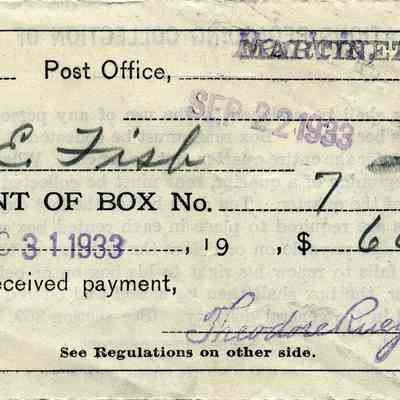 Post Office, MARTINEZ
SEP 22 1933
E Fish
NT OF BOX No. 7
C 31 1933, 19 , $ 60
eceived payment,
Theodore
See Regulations on other side.